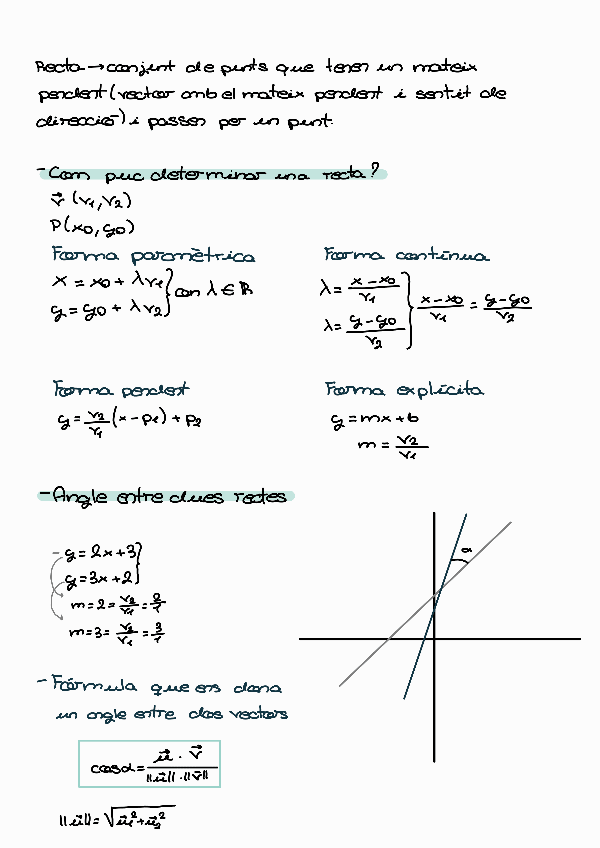 Recta → conjunt de punts que tenen un mateix
pendent (vector amb el mateix pendent i sentit de
direcció) i passen per un punt.
- Com puc determinar una recta?
v⃗ (v₁, v₂)
P(x0, y0)
Forma paramètrica
x = x0 + λv₁
y = y0 + λv₂ } con λ ∈ ℝ
Forma contínua
λ = (x - x0)/v₁
λ = (y - y0)/v₂ } (x - x0)/v₁ = (y - y0)/v₂
Forma pendent
y = v₂/v₁ (x - p₁) + p₂
Forma explícita
y = mx + b
m = v₂/v₁
- Angle entre dues rectes
- y = 2x + 3
y = 3x + 2 }
m = 2 = v₂/v₁ = 2/1
m = 3 = v₂/v₁ = 3/1
α
- Fórmula que ens dona
un angle entre dos vectors
cosα = u⃗ · v⃗ / ||u⃗|| · ||v⃗||
||u⃗|| = √(u⃗₁² + u⃗₂²)